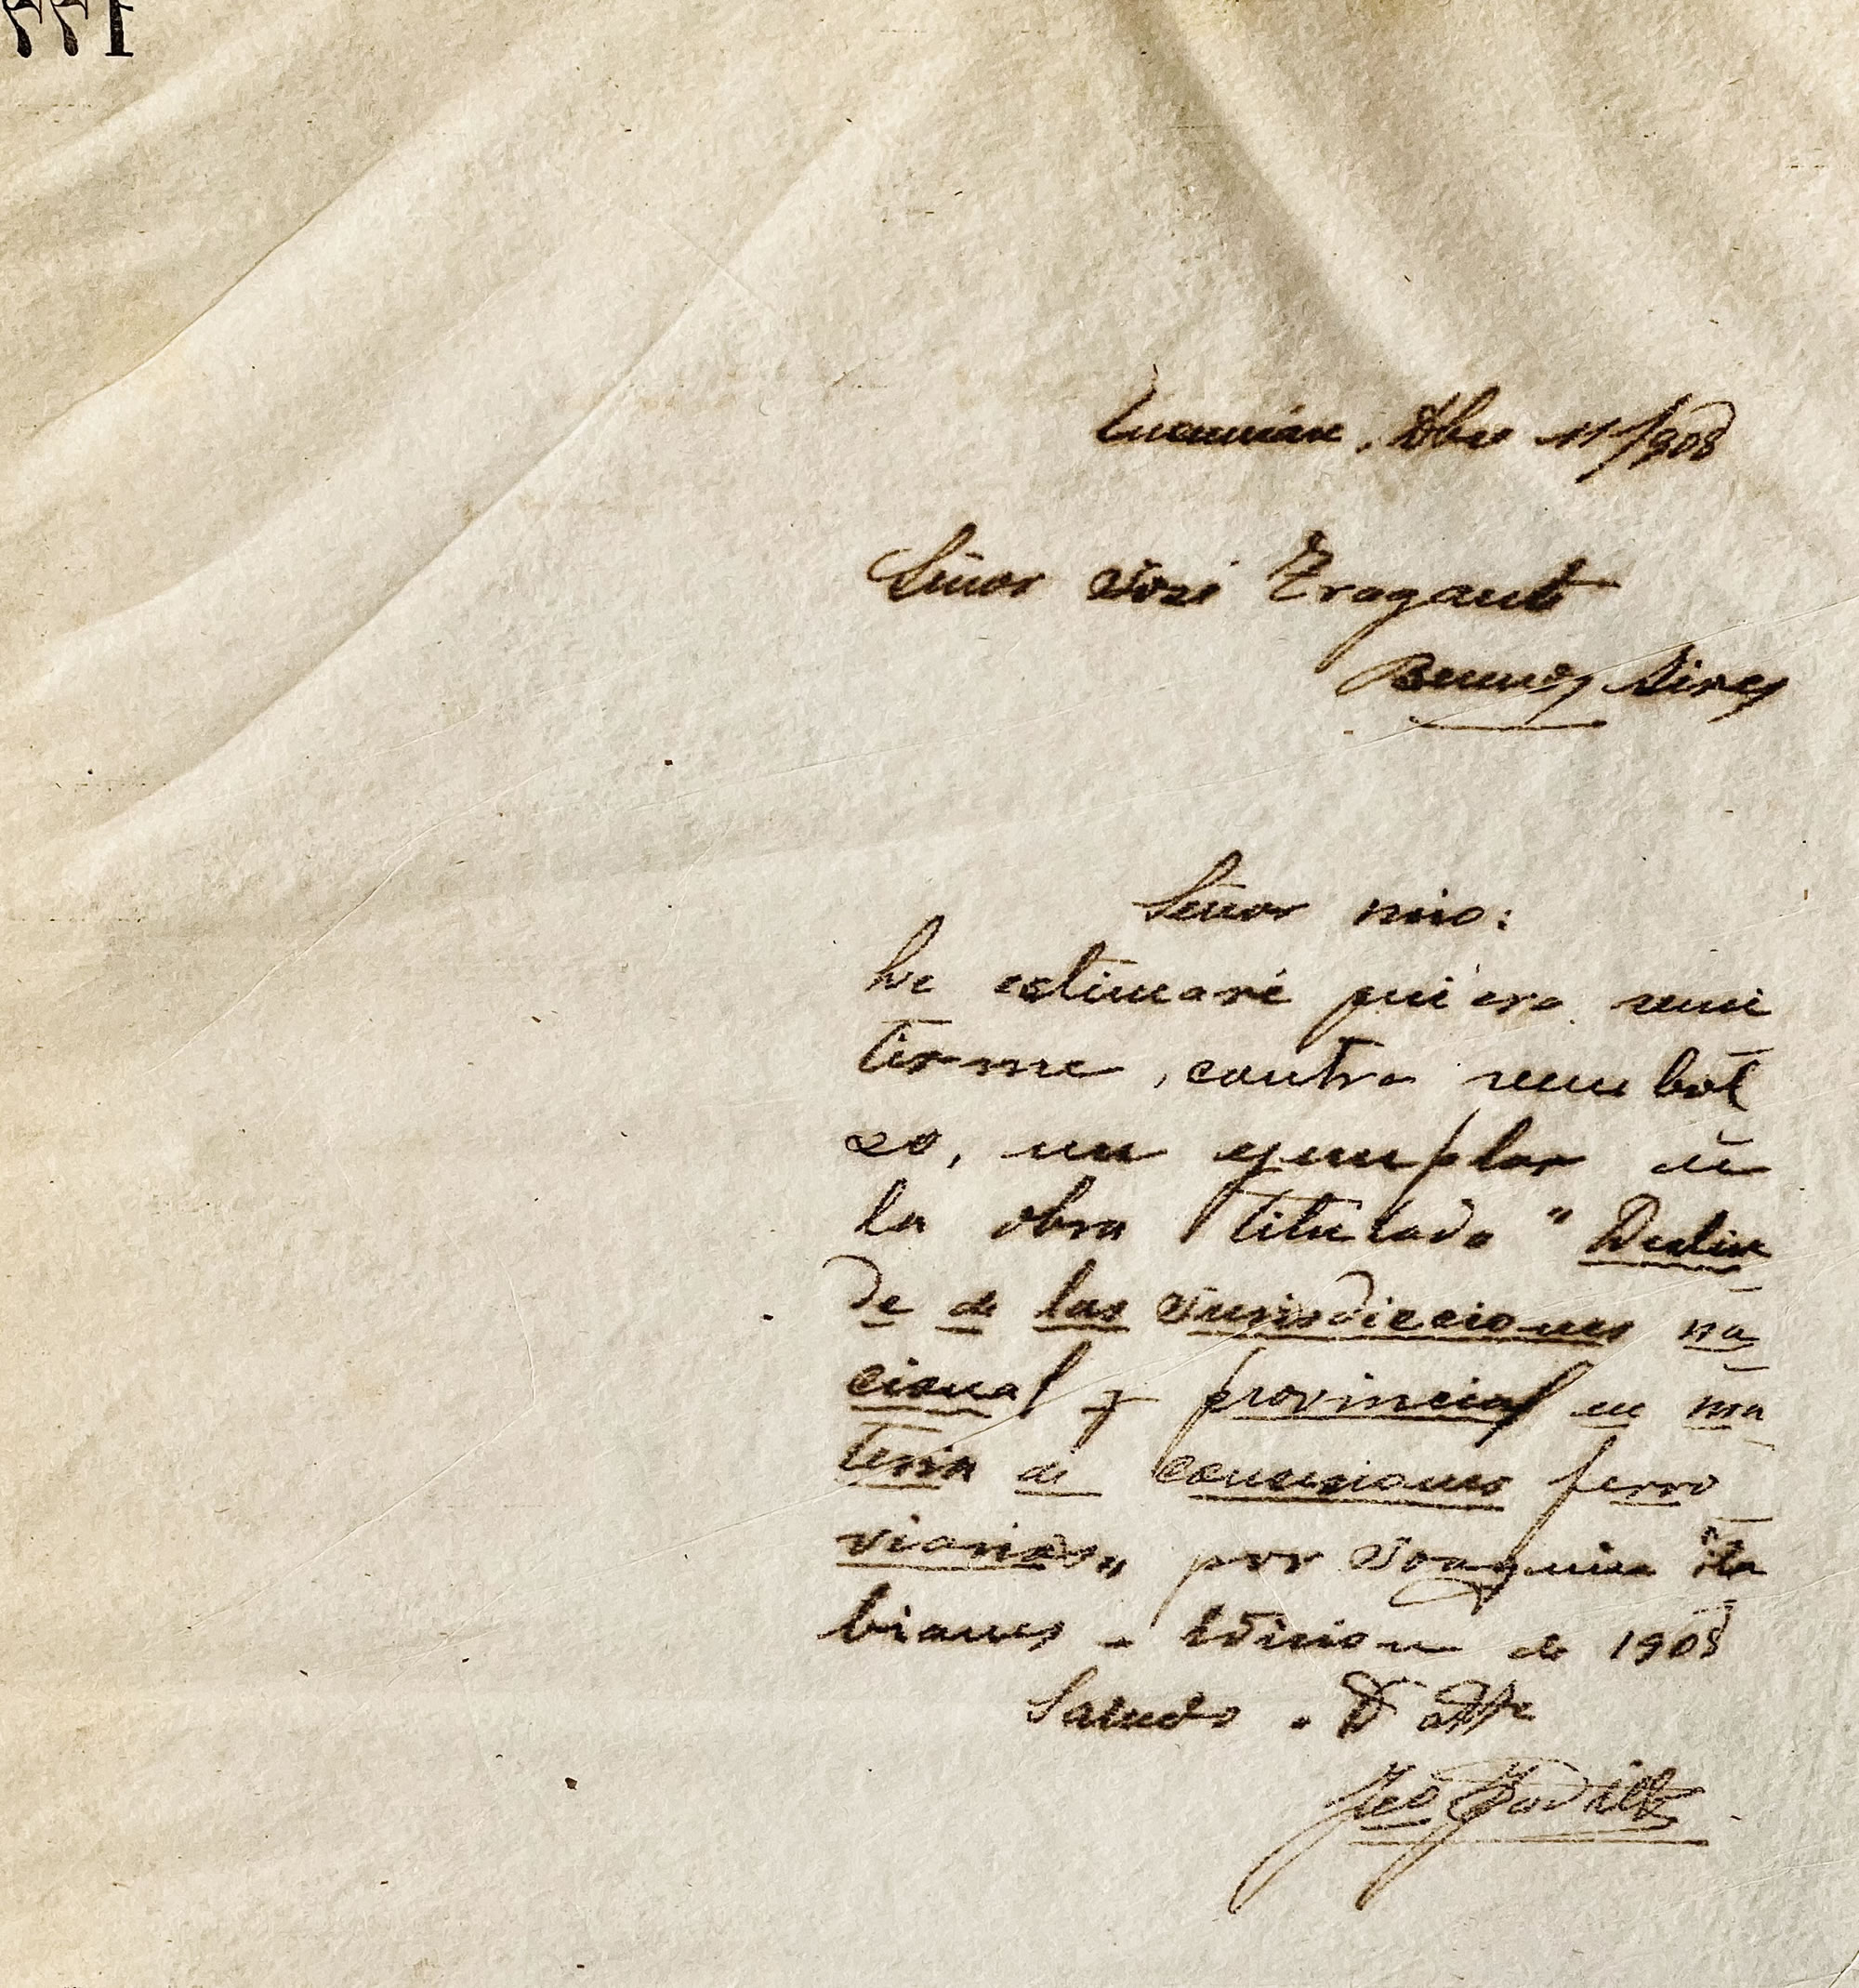 177
Tucumán, Dbre 11/908
Señor José Tragant
Buenos Aires
Señor mio:
Le estimaré quiera remi
tirme, contra rembol
so, un ejemplar de
la obra titulada "Deslin
de de las Jurisdicciones na
cional y provincial en ma
teria de concesiones ferro
viarias", por Joaquin
bianes - Edicion de 1908
Saludo a Vd atte
Padilla